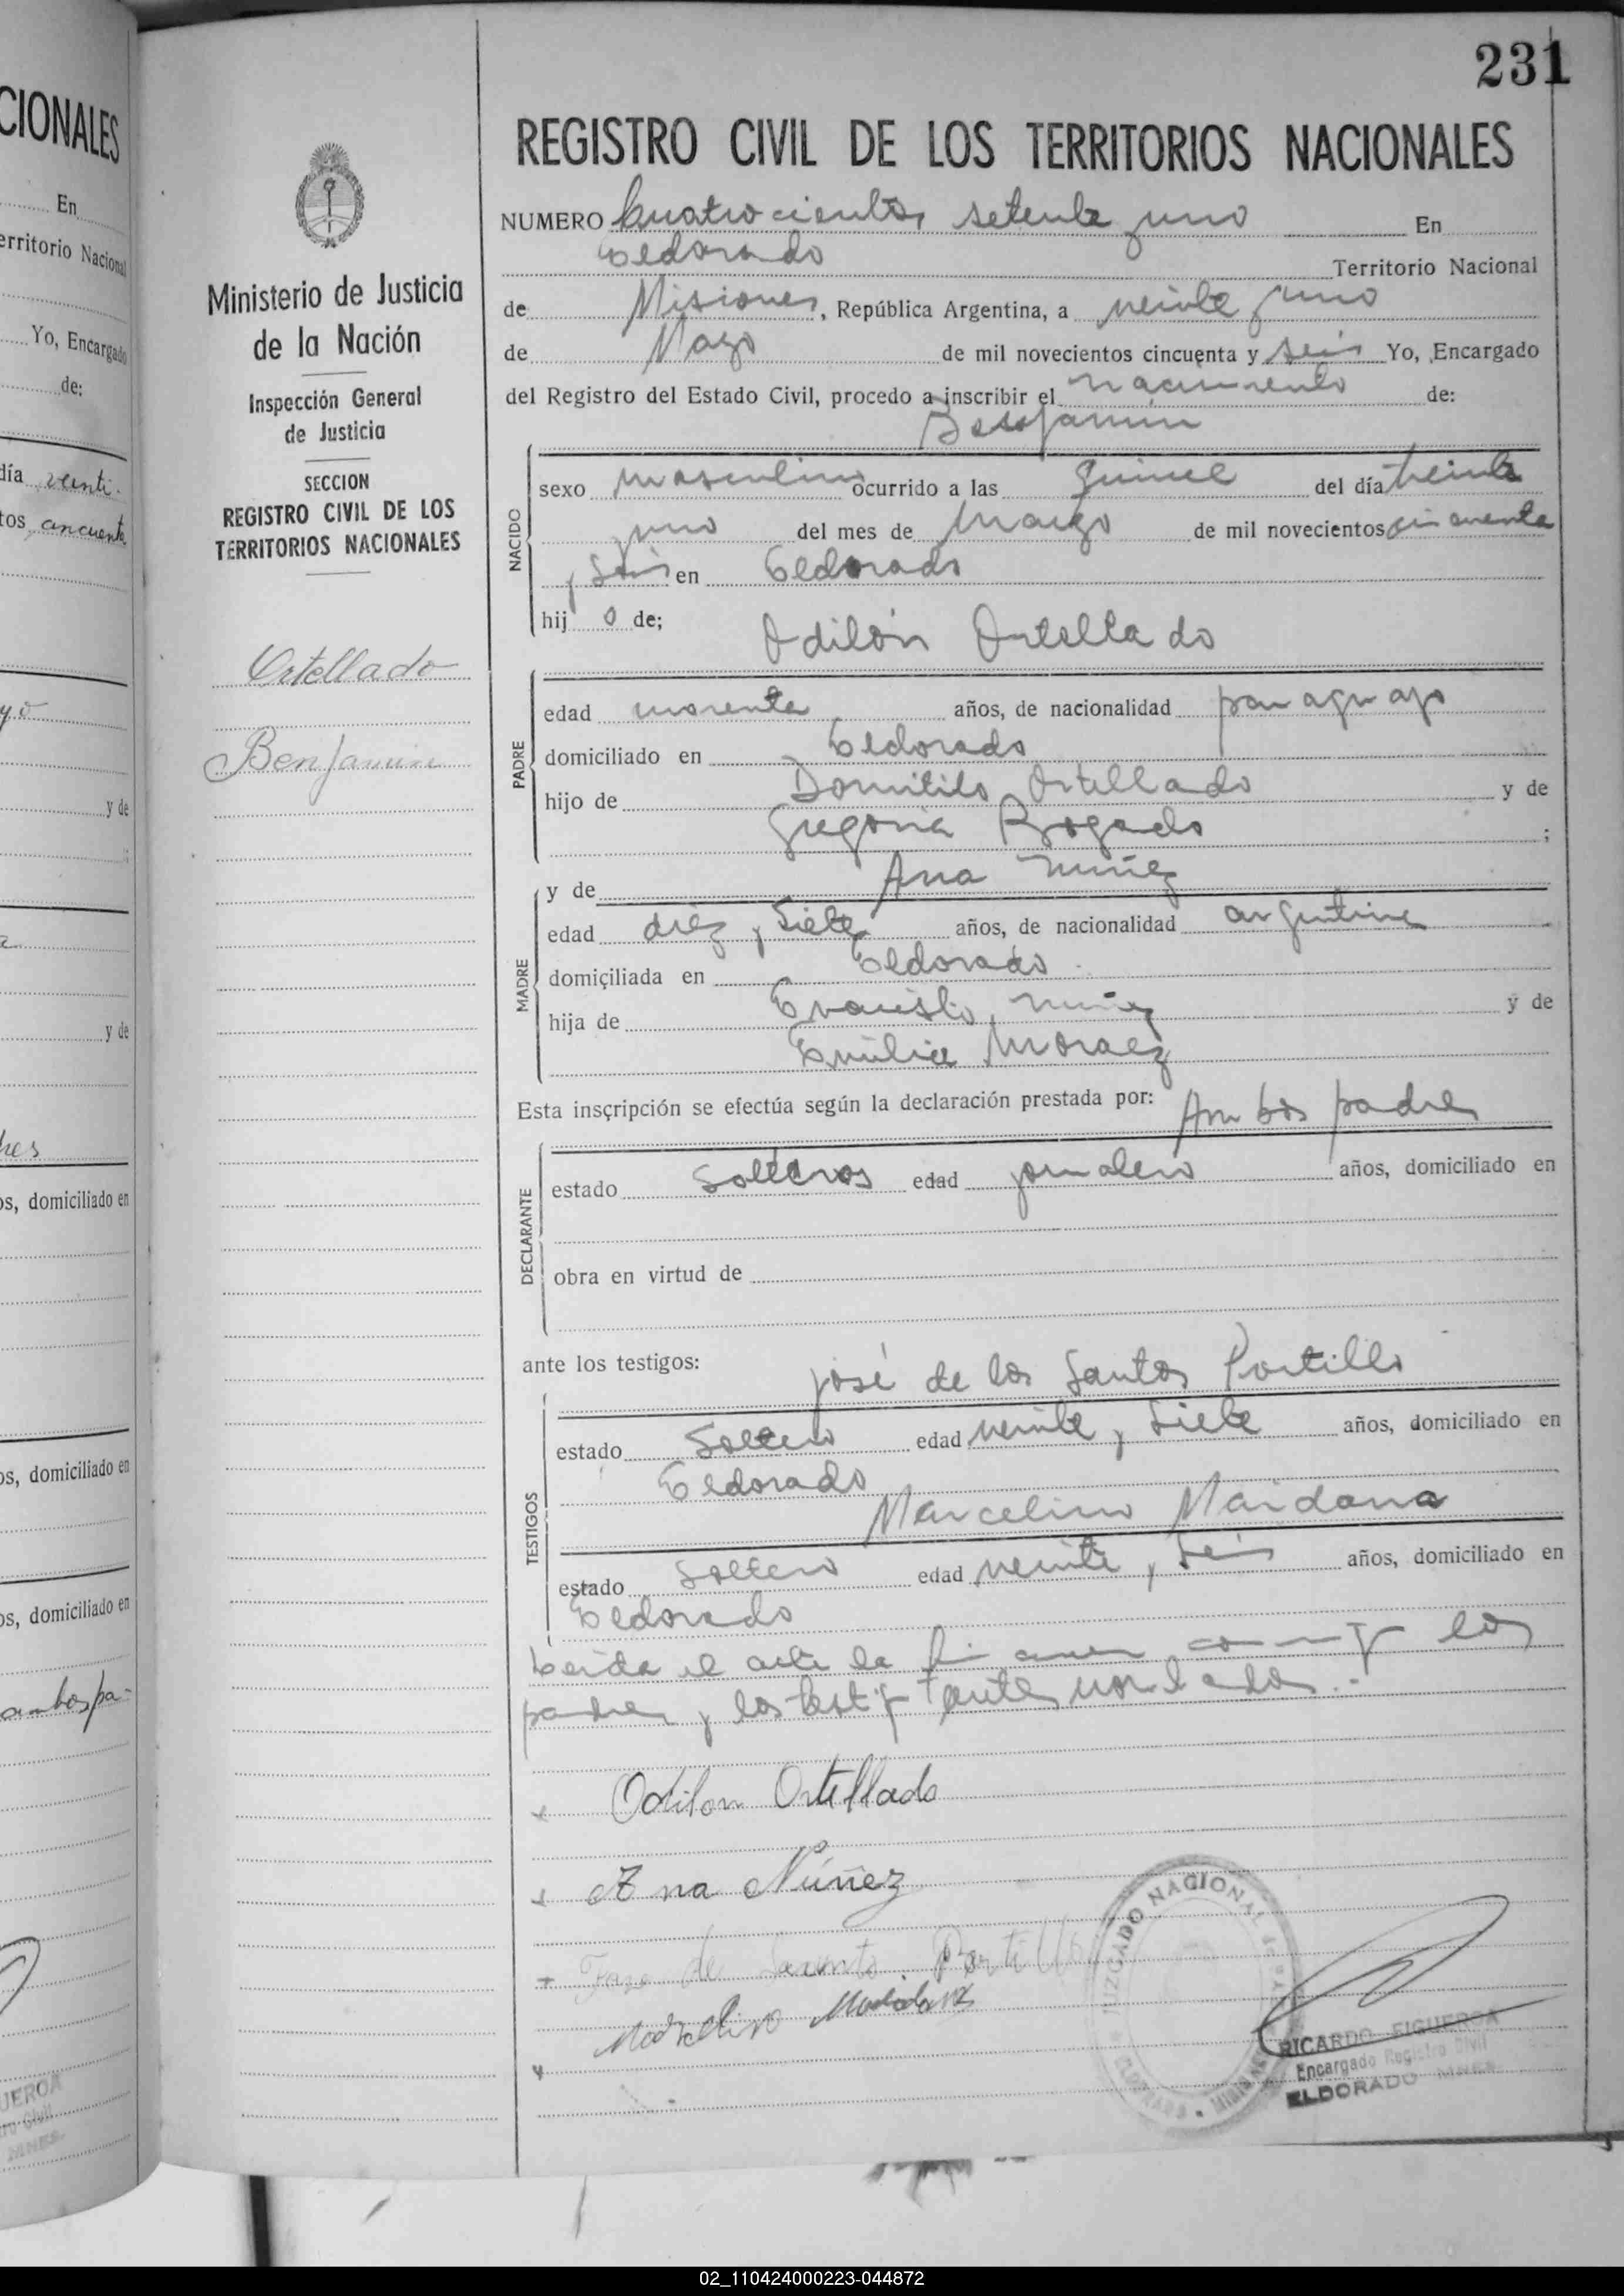 CIONALES
En
erritorio Nacional
Yo, Encargado
de:
día veinti-
tos cincuenta
yo
y de
y de
os, domiciliado en
os, domiciliado en
os, domiciliado en
ambos pa-
231
Ministerio de Justicia
de la Nación
Inspección General
de Justicia
SECCION
REGISTRO CIVIL DE LOS
TERRITORIOS NACIONALES
Ortellado
Benjamin
REGISTRO CIVIL DE LOS TERRITORIOS NACIONALES
NUMERO Cuatrocientos setenta y uno En
Eldorado Territorio Nacional
de Misiones, República Argentina, a veinte y uno
de Mayo de mil novecientos cincuenta y seis Yo, Encargado
del Registro del Estado Civil, procedo a inscribir el nacimiento de:
Benjamin
NACIDO
sexo masculino ocurrido a las quince del día treinta
y uno del mes de Marzo de mil novecientos cincuenta
y seis en Eldorado
hij o de; Odilón Ortellado
PADRE
edad años, de nacionalidad paraguayo
domiciliado en Eldorado
hijo de Domitilo Ortellado y de
Gregoria Bogado ;
y de Ana Nuñez
MADRE
edad diez y siete años, de nacionalidad argentina
domiciliada en Eldorado
hija de Evaristo Nuñez y de
Emilia Moraez
Esta inscripción se efectúa según la declaración prestada por: Ambos padres
DECLARANTE
estado Solteros edad jornalero años, domiciliado en
obra en virtud de
ante los testigos: José de los Santos Portillo
TESTIGOS
estado Soltero edad veinte y siete años, domiciliado en
Eldorado
Marcelino Maidana
estado Soltero edad veinte y seis años, domiciliado en
Eldorado
Leida el acta la los
padres y los testig
Odilon Ortellado
Ana Núñez
de Portillo
Marcelino Maidana
JUZGADO NACIONAL
RICARDO FIGUEROA
Encargado Registro Civil
ELDORADO MNES.
02_110424000223-044872